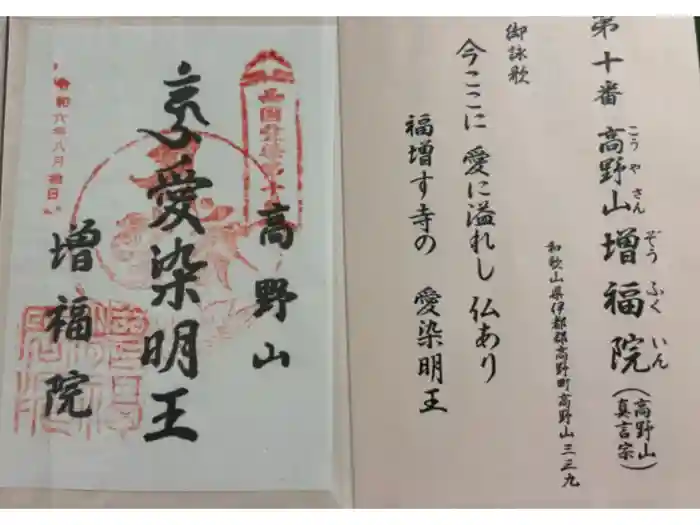 第十番 高野山 増福院 (高野山真言宗)
こうやさん ぞうふくいん
和歌山県伊都郡高野町高野山三三九
御詠歌
今ここに 愛に溢れし 仏あり
福増す寺の 愛染明王
高野山
愛染明王
増福院
令和六年八月